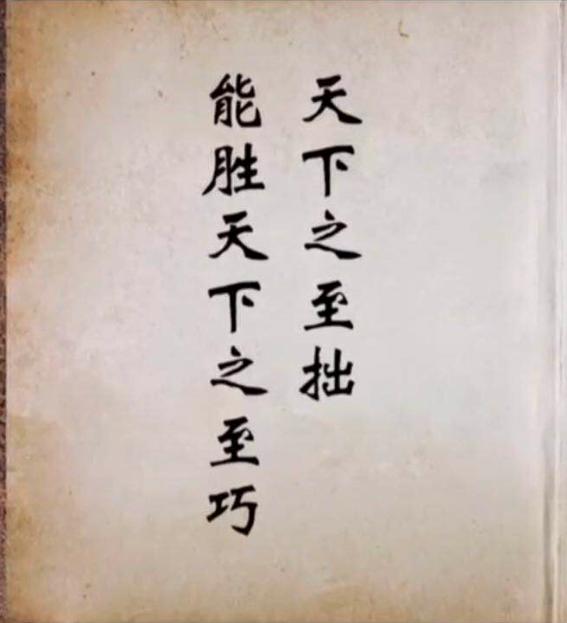 天下之至拙
能胜天下之至巧